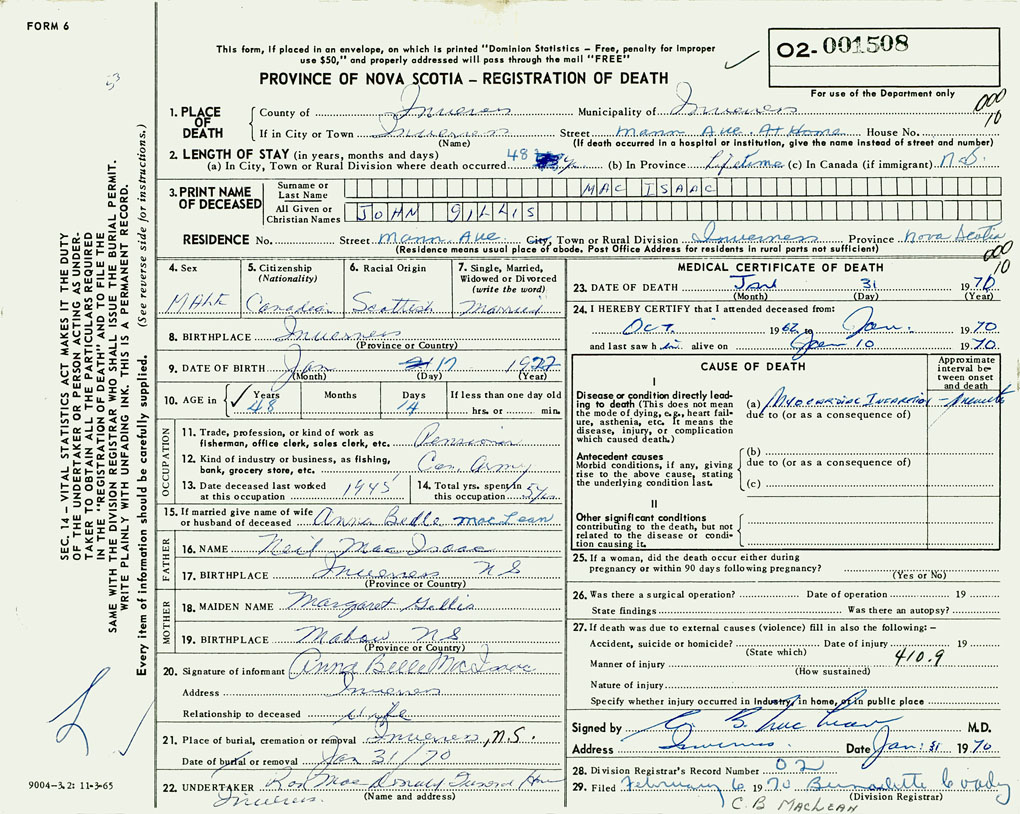 FORM 6
This form, if placed in an envelope, on which is printed "Dominion Statistics – Free, penalty for improper
use $50," and properly addressed will pass through the mail "FREE"
PROVINCE OF NOVA SCOTIA – REGISTRATION OF DEATH
O2-001508
For use of the Department only
53
000
10
SEC. 14 – VITAL STATISTICS ACT MAKES IT THE DUTY
OF THE UNDERTAKER OR PERSON ACTING AS UNDER-
TAKER TO OBTAIN ALL THE PARTICULARS REQUIRED
IN THE "REGISTRATION OF DEATH" AND TO FILE THE
SAME WITH THE DIVISION REGISTRAR WHO SHALL ISSUE THE BURIAL PERMIT.
WRITE PLAINLY WITH UNFADING INK. THIS IS A PERMANENT RECORD.
Every item of information should be carefully supplied. (See reverse side for instructions.)
1. PLACE OF DEATH
County of Inverness Municipality of Inverness
If in City or Town Inverness Street Mann Ave. At Home House No.
(Name) (If death occurred in a hospital or institution, give the name instead of street and number)
2. LENGTH OF STAY (in years, months and days)
(a) In City, Town or Rural Division where death occurred 48 y (b) In Province Lifetime (c) In Canada (if immigrant) N.S.
3. PRINT NAME OF DECEASED
Surname or Last Name MAC ISAAC
All Given or Christian Names JOHN GILLIS
RESIDENCE No. Street Mann Ave City, Town or Rural Division Inverness Province Nova Scotia
(Residence means usual place of abode. Post Office Address for residents in rural parts not sufficient)
000
10
4. Sex MALE
5. Citizenship (Nationality) Canadian
6. Racial Origin Scottish
7. Single, Married, Widowed or Divorced (write the word) Married
8. BIRTHPLACE Inverness
(Province or Country)
9. DATE OF BIRTH Jan 17 1922
(Month) (Day) (Year)
10. AGE in Years 48 Months Days 14 If less than one day old hrs. or min.
OCCUPATION
11. Trade, profession, or kind of work as fisherman, office clerk, sales clerk, etc. Pension
12. Kind of industry or business, as fishing, bank, grocery store, etc. Can. Army
13. Date deceased last worked at this occupation 1945
14. Total yrs. spent in this occupation 5 yrs.
15. If married give name of wife or husband of deceased Anna Belle MacLean
FATHER
16. NAME Neil Mac Isaac
17. BIRTHPLACE Inverness NS
(Province or Country)
MOTHER
18. MAIDEN NAME Margaret Gillis
19. BIRTHPLACE Mabou NS
(Province or Country)
20. Signature of informant Anna Belle MacIsaac
Address Inverness
Relationship to deceased wife
21. Place of burial, cremation or removal Inverness, N.S.
Date of burial or removal Jan 31/70
22. UNDERTAKER Ron Mac Donald Funeral Home
Inverness. (Name and address)
9004–3.2: 11-3-65
MEDICAL CERTIFICATE OF DEATH
23. DATE OF DEATH Jan 31 1970
(Month) (Day) (Year)
24. I HEREBY CERTIFY that I attended deceased from:
Oct. 1962 to Jan. 1970
and last saw him alive on Jan 10 1970.
CAUSE OF DEATH
Approximate interval between onset and death
I
Disease or condition directly leading to death (This does not mean the mode of dying, e.g., heart failure, asthenia, etc. It means the disease, injury, or complication which caused death.)
(a) Myocardial Infarction - minutes
due to (or as a consequence of)
Antecedent causes
Morbid conditions, if any, giving rise to the above cause, stating the underlying condition last.
(b)
due to (or as a consequence of)
(c)
II
Other significant conditions
contributing to the death, but not related to the disease or condition causing it.
25. If a woman, did the death occur either during
pregnancy or within 90 days following pregnancy?
(Yes or No)
26. Was there a surgical operation? Date of operation 19
State findings Was there an autopsy?
27. If death was due to external causes (violence) fill in also the following: –
Accident, suicide or homicide? Date of injury 19
(State which)
Manner of injury 410.9
(How sustained)
Nature of injury
Specify whether injury occurred in Industry, in home, or in public place
Signed by C. B. MacLean M.D.
Address Inverness. Date Jan. 31 1970
28. Division Registrar's Record Number 02
29. Filed February 6 1970 Bernadette Coady
(Division Registrar)
C. B MACLEAN